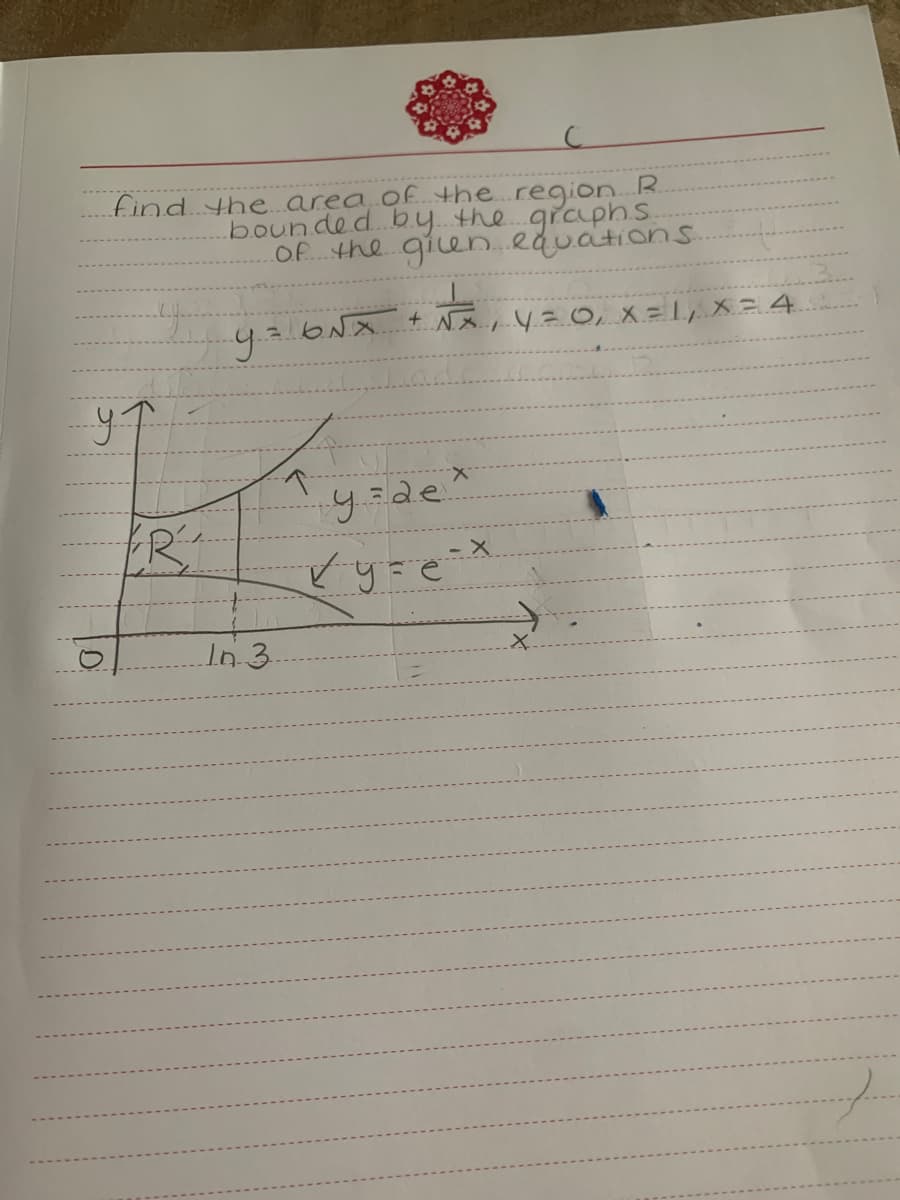 C
find the area of the region R
bounded by the graphs
of the giuen equations
y = 6√x + 1/√x , y = 0, x = 1, x = 4
y
y = 2e^x
R
y = e^-x
0 ln 3 x